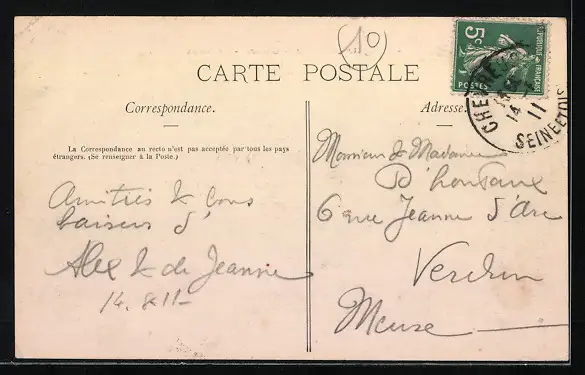 10
CARTE POSTALE
5c
POSTES
REPUBLIQUE FRANÇAISE
CHEVREUSE
14
11
SEINE ET OISE
Correspondance.
Adresse.
La Correspondance au recto n'est pas acceptée par tous les pays
étrangers. (Se renseigner à la Poste.)
Amitiés & bons
baisers d'
Alex & de Jeanne
14. 8 11-
Monsieur & Madame
D'hontaux
6 rue Jeanne d'Arc
Verdun
Meuse